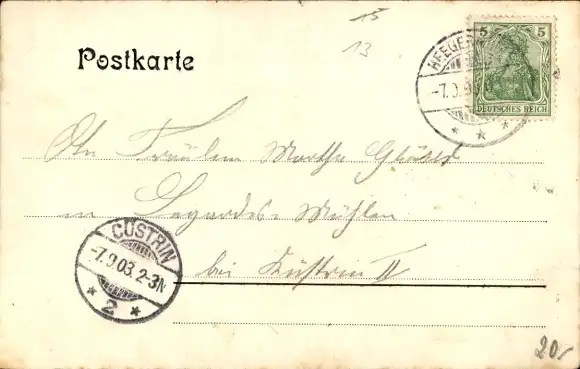 15
13
Postkarte
5 5
DEUTSCHES REICH
HEEGER
-7.9.
An Fräulein Martha
in Lagardes-Mühlen
bei Küstrin II
CÜSTRIN
-7.9.03. 2-3N
* 2 *
20,-